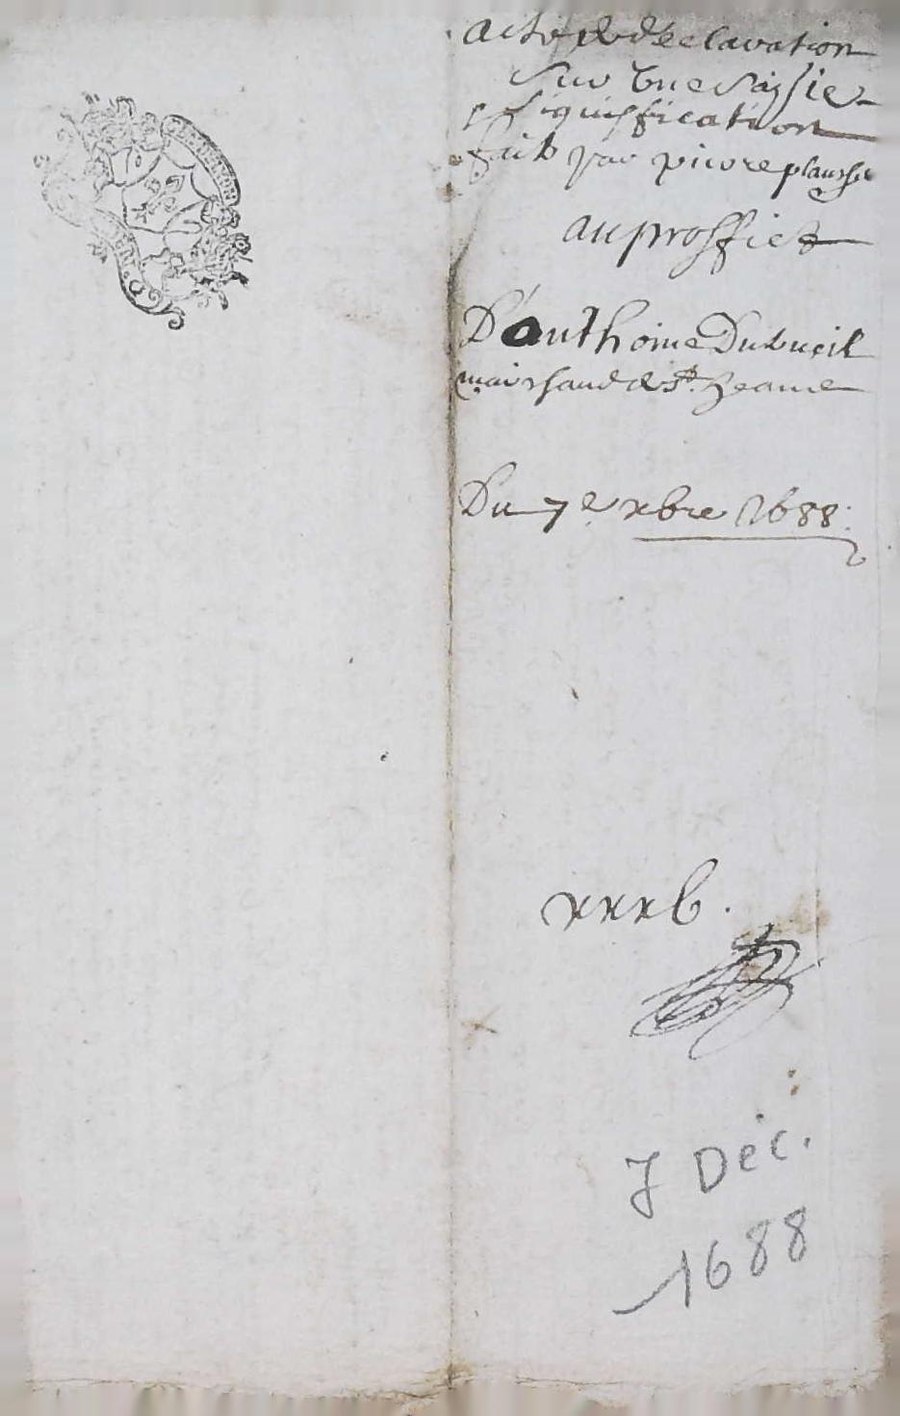 acte de declaration
sur une saisie
signiffication
fait par pierre
au proffict
D'anthoine Dubueil
marchand de St. Jeame
Du 7e xbre 1688
xxxb.
7 Dec.
1688